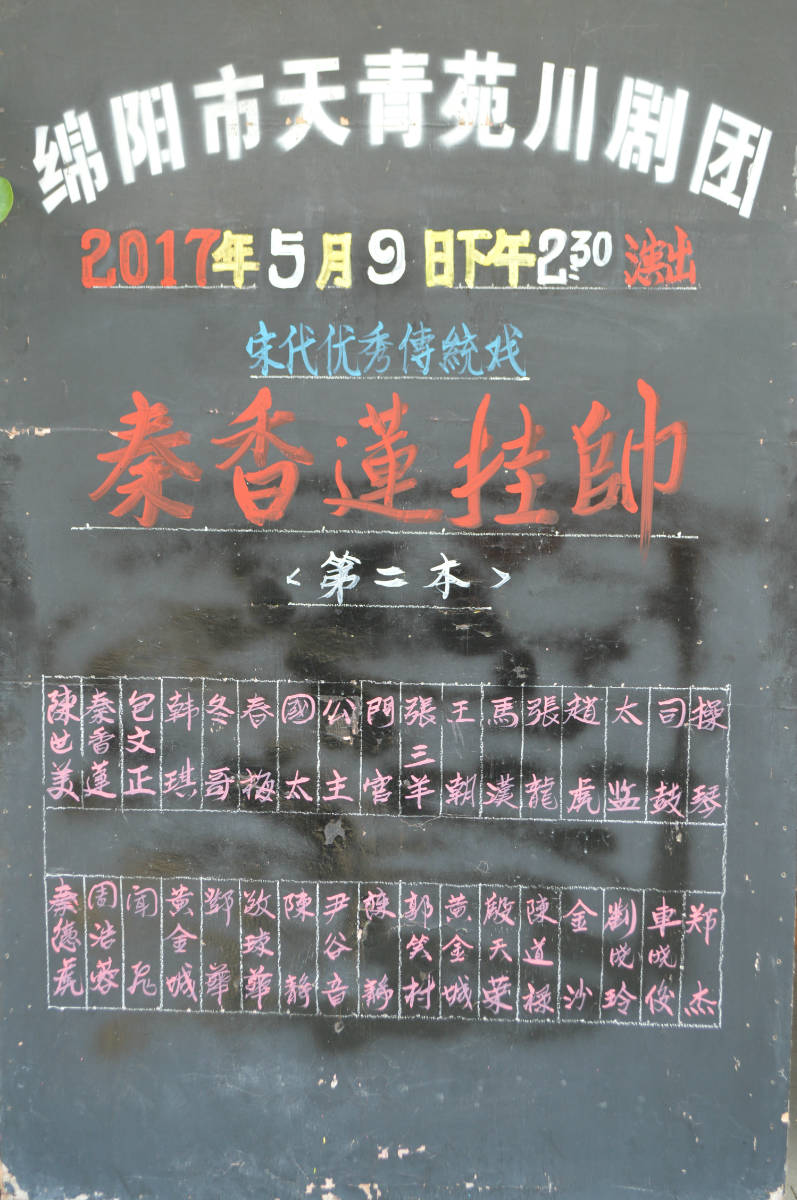 绵阳市天青苑川剧团
2017年5月9日下午2:30演出
宋代优秀傳統戏
秦香蓮挂帥
<第二本>
陳世美 秦香蓮 包文正 韩琪 冬哥 春梅 國太 公主 門官 張三羊 王朝 馬漢 張龍 趙虎 太监 司鼓 操琴
秦德虎 周浩蓉 闻飛 黄金城 邓華 敬球華 陳靜 尹谷音 陳靜 郭笑村 黄金城 殷天葉 陳道禄 金沙 劉晓玲 車晓俊 郑杰